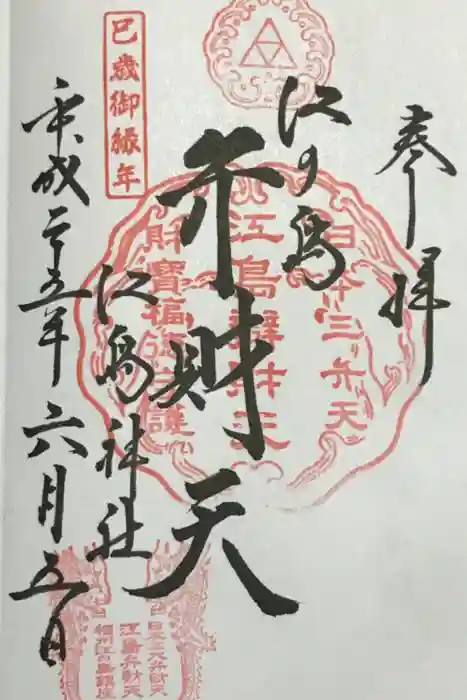 奉拝
江の島
弁財天
江島神社
平成二十五年六月五日
巳歳御縁年
日本三弁天
江島辨財天
財寶福
日本三大弁財天
江島弁財天